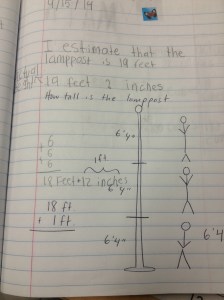 9/15/14
I estimate that the
lamppost is 19 feet
19 feet 2 inches
How tall is the lamppost
6
+ 6
+ 6
18 feet + 12 inches
1 ft
18 ft
+ 1 ft
6'4"
6'4"
6'4"
6'4